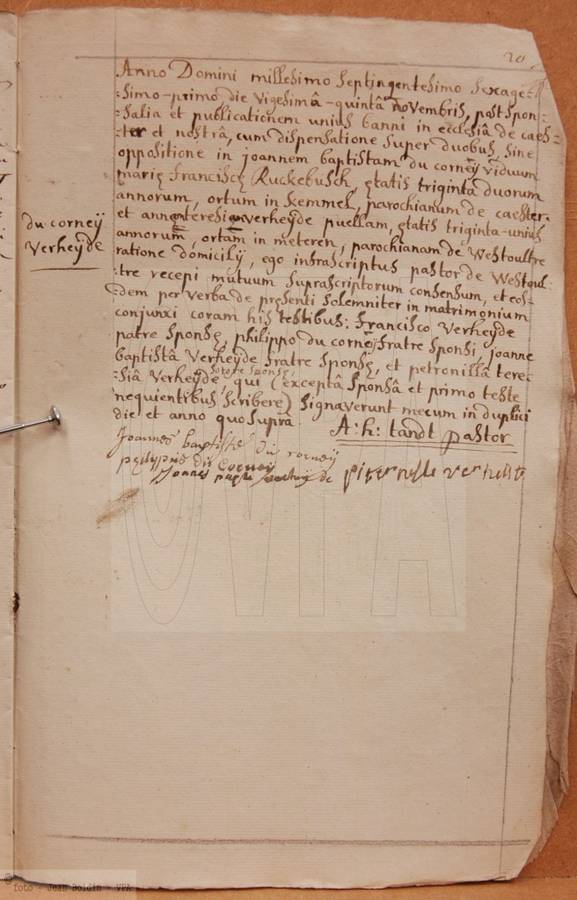 20
Anno Domini millesimo septingentesimo sexage-
-simo-primo, die vigesimâ-quintâ novembris, post spon-
-salia et publicationem unius banni in ecclesiâ de caes-
-ter et nostrâ, cum dispensatione super duobus, sine
oppositione in joannem baptistam du corneÿ viduum
mariæ franciscæ Ruckebusch, ætatis triginta duorum
annorum, ortum in kemmel, parochianum de caester
et annam teresiam verheyde puellam, ætatis triginta-unius
annorum, ortam in meteren, parochianam de westoultre
ratione domicilij, ego infrascriptus pastor de westoul-
-tre recepi mutuum suprascriptorum consensum, et eos-
-dem per verba de præsenti solemniter in matrimonium
conjunxi coram his testibus: francisco verheyde
patre sponsæ, philippo du corneÿ fratre sponsi, joanne
baptistâ verheyde fratre sponsæ, et petronillâ tere-
sorore sponsæ,
-siâ verheyde, qui (exceptâ sponsâ et primo teste
nequientibus scribere) signaverunt mecum in duplici
die et anno quo suprà.
A: h: tandt pastor
du corneÿ
verheyde
Joannes baptiste du corneij
du corneij
Joannes
foto - Jean Boldin - VVFA